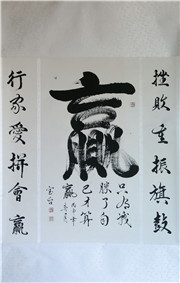 挫敗重振旗鼓
贏
只為戰
勝了自
己才算
贏
行家愛拼會贏